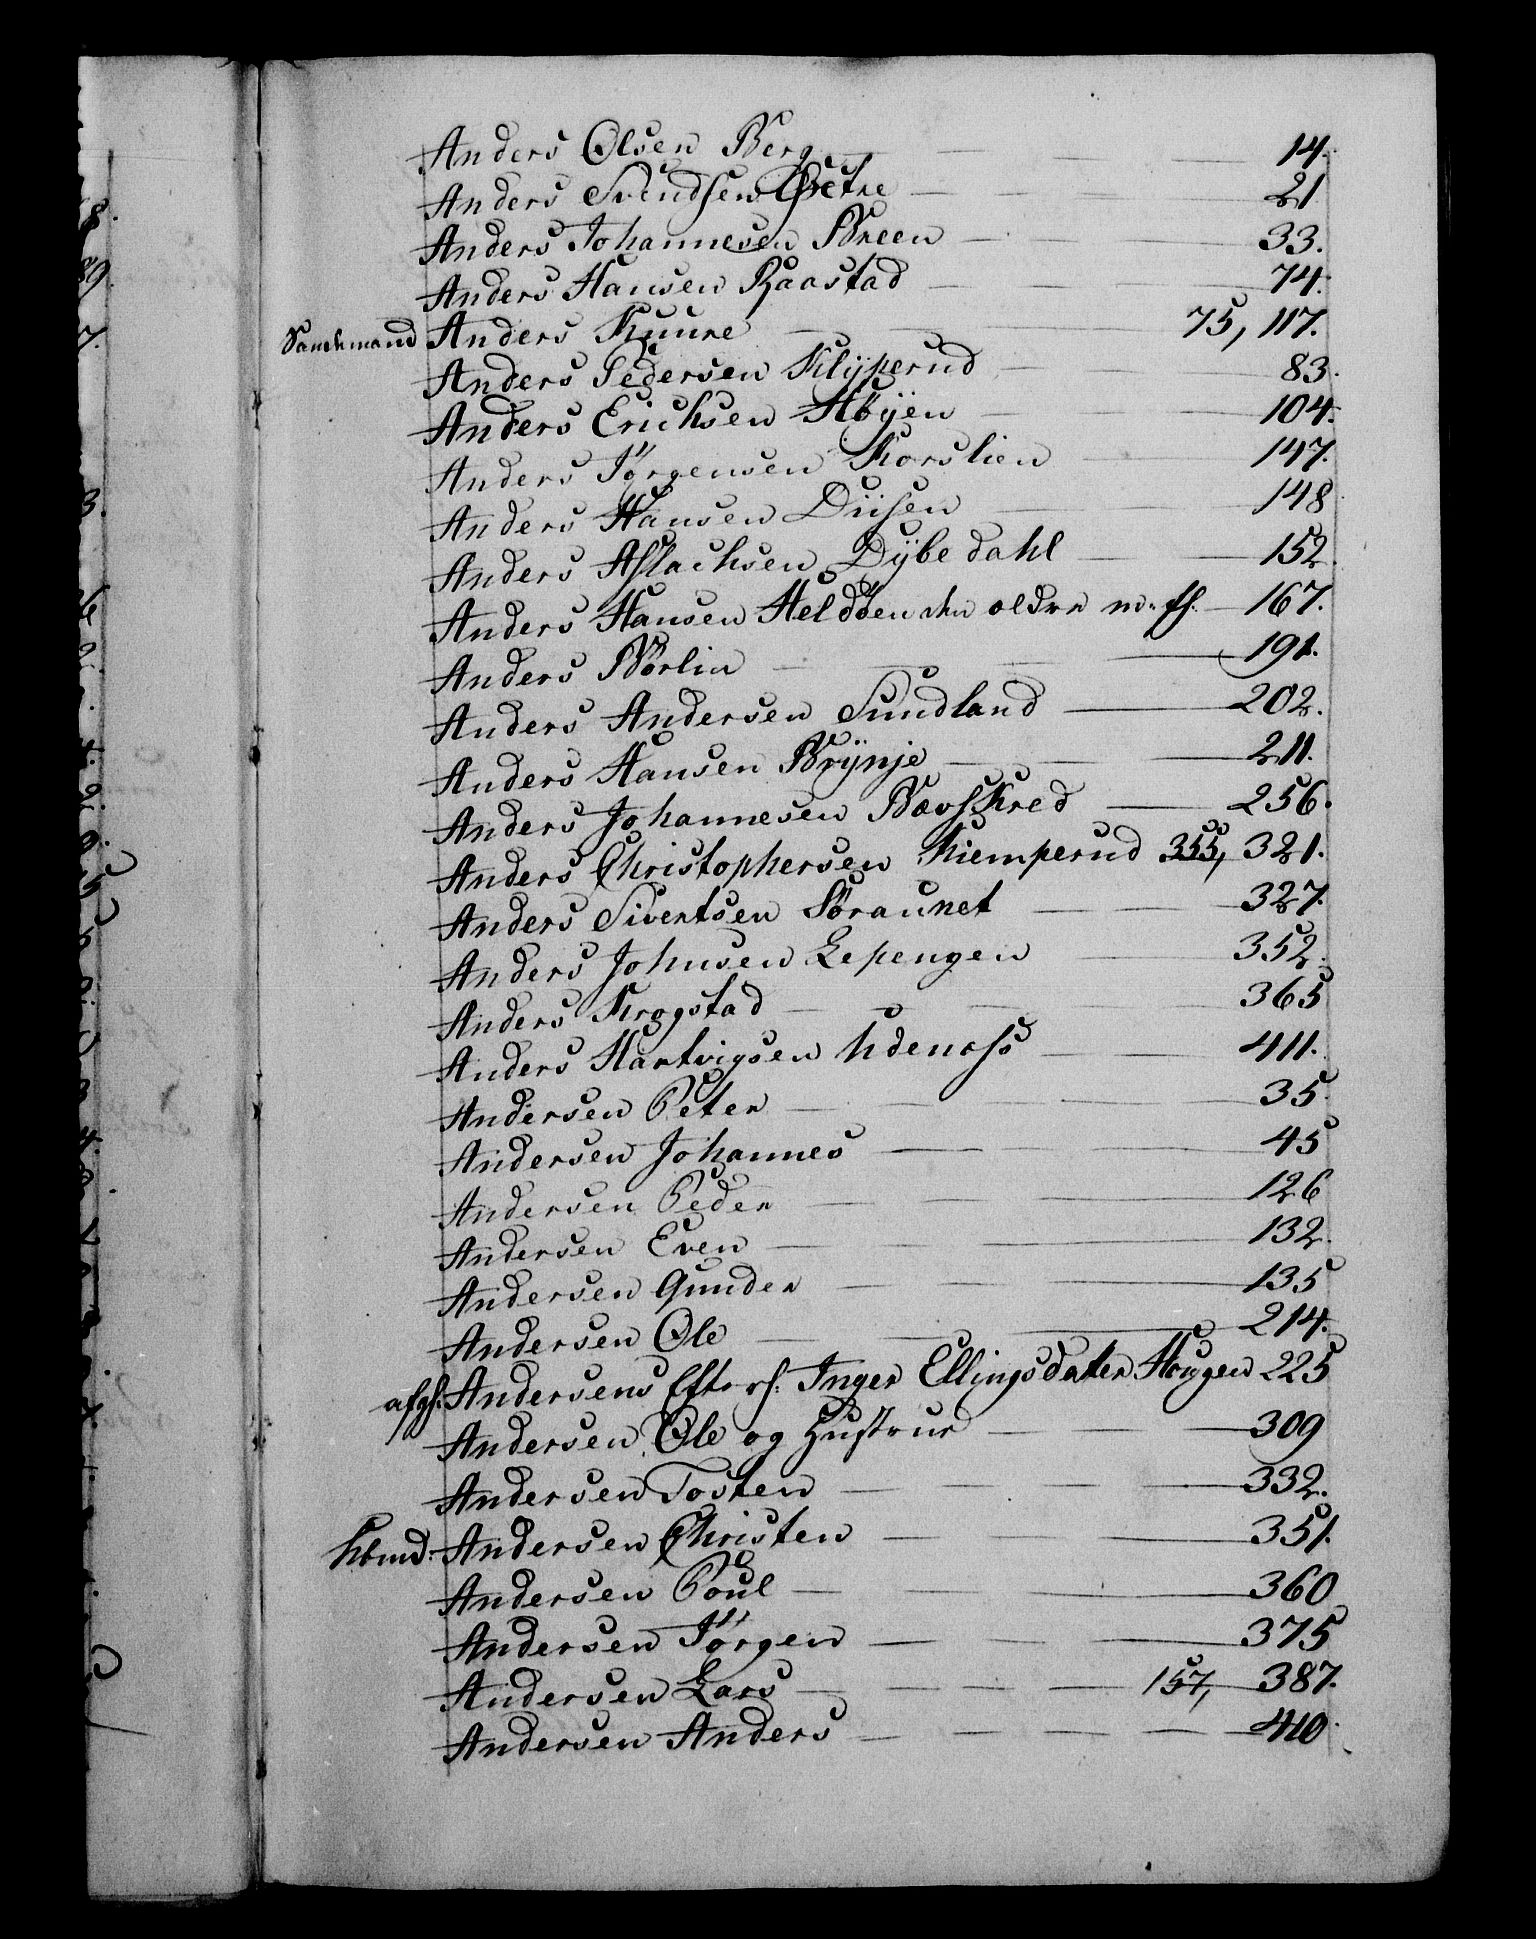 Anders Olsen Berg 14.
Anders Svendsen Østre 21
Anders Johannesen Breen 33.
Anders Hansen Raastad 74.
Anders Kuure 75, 117.
Anders Pedersen Klÿperud 83.
Anders Erichsen Høÿen 104.
Anders Jørgensen Korslien 147.
Anders Hansen Diisen 148
Anders Aslachsen Dÿbedahl 152.
Anders Hansen Heldøen den ældre m. fl. 167.
Anders Børlin 191.
Anders Andersen Sundland 202.
Anders Hansen Brÿnje 211.
Anders Johannesen Bævskred 256.
Anders Christophersen Kiemperud 355, 321.
Anders Sivertsen Søraunet 327.
Anders Johnsen Lepengen 352.
Anders Krogstad 365
Anders Hartvigsen Udenæss 411.
Andersen Peter 35.
Andersen Johannes 45
Andersen Peder 126
Andersen Even 132.
Andersen Gunder 135
Andersen Ole 214.
afgl. Andersens Efterl: Inger Ellingsdater Hougen 225
Andersen Ole og Hustrue 309
Andersen Tosten 332.
Hbmd: Andersen Christen 351.
Andersen Poul 360
Andersen Jørgen 375
Andersen Lars 157, 387.
Andersen Anders 410.